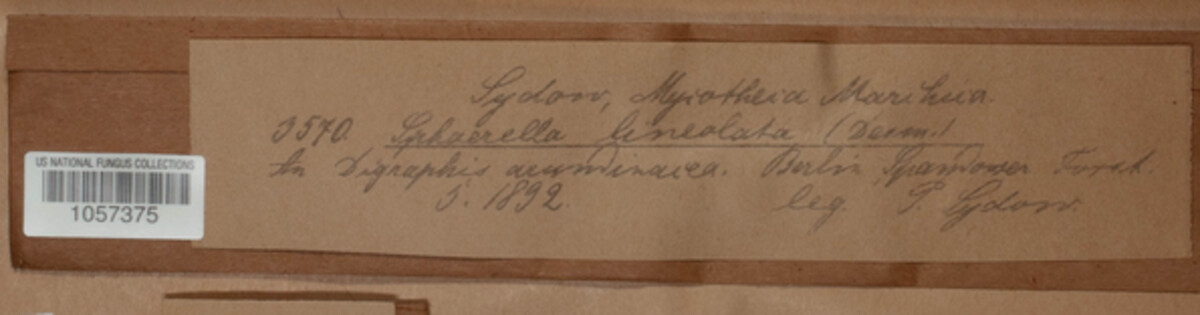 Sydow, Mycotheca Marchica.
3570. Sphaerella lineolata (Desm.)
An Digraphis arundinacea. Berlin Spandower Forst.
5. 1892. leg. P. Sydow.
US NATIONAL FUNGUS COLLECTIONS
1057375